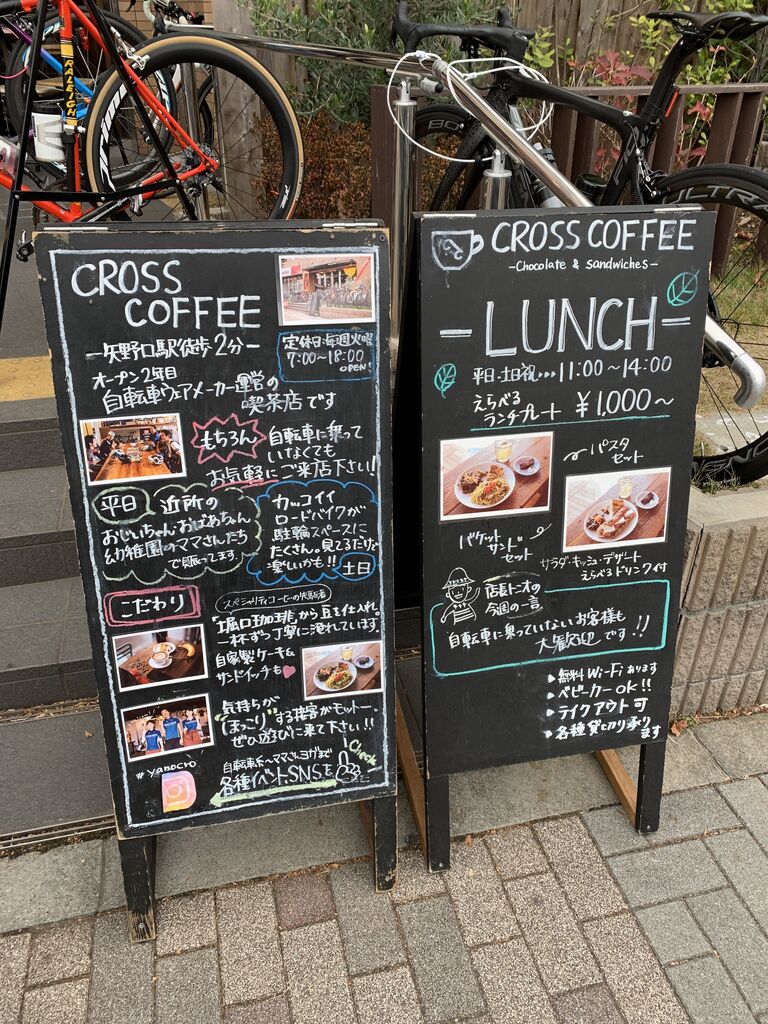 RALEIGH
CROSS
COFFEE
−矢野口駅徒歩2分−
定休日:毎週火曜
7:00〜18:00
OPEN!
オープン2年目
自転車ウェアメーカー運営の
喫茶店です
もちろん
自転車に乗って
いなくても
お気軽にご来店下さい!
平日
近所の
おじいちゃん・おばあちゃん
幼稚園のママさんたち
で賑ってます.
カッコイイ
ロードバイクが
駐輪スペースに
たくさん。見てるだけで
楽しいかも!!
土日
こだわり
スペシャリティコーヒーの先駆者
"堀口珈琲"から豆を仕入れ.
一杯ずつ丁寧に淹れています.
自家製ケーキ&
サンドイッチも
気持ちが
"ほっこり"する接客がモットー.
ぜひ遊びに来て下さい!!
自転車系〜ママさんヨガまで
各種イベントSNSを
Check
#yanocro
CROSS COFFEE
-Chocolate & Sandwiches-
−LUNCH−
平日・土日祝・・・11:00〜14:00
えらべる
ランチプレート ¥1,000〜
パスタ
セット
バゲット
サンド
セット
サラダ・キッシュ・デザート
えらべるドリンク付
店長トニオの
今週の一言
自転車に乗っていないお客様も
大歓迎です!!
▶無料Wi-Fiあります
▶ベビーカーOK!!
▶テイクアウト可
▶各種貸し切り承り
ます